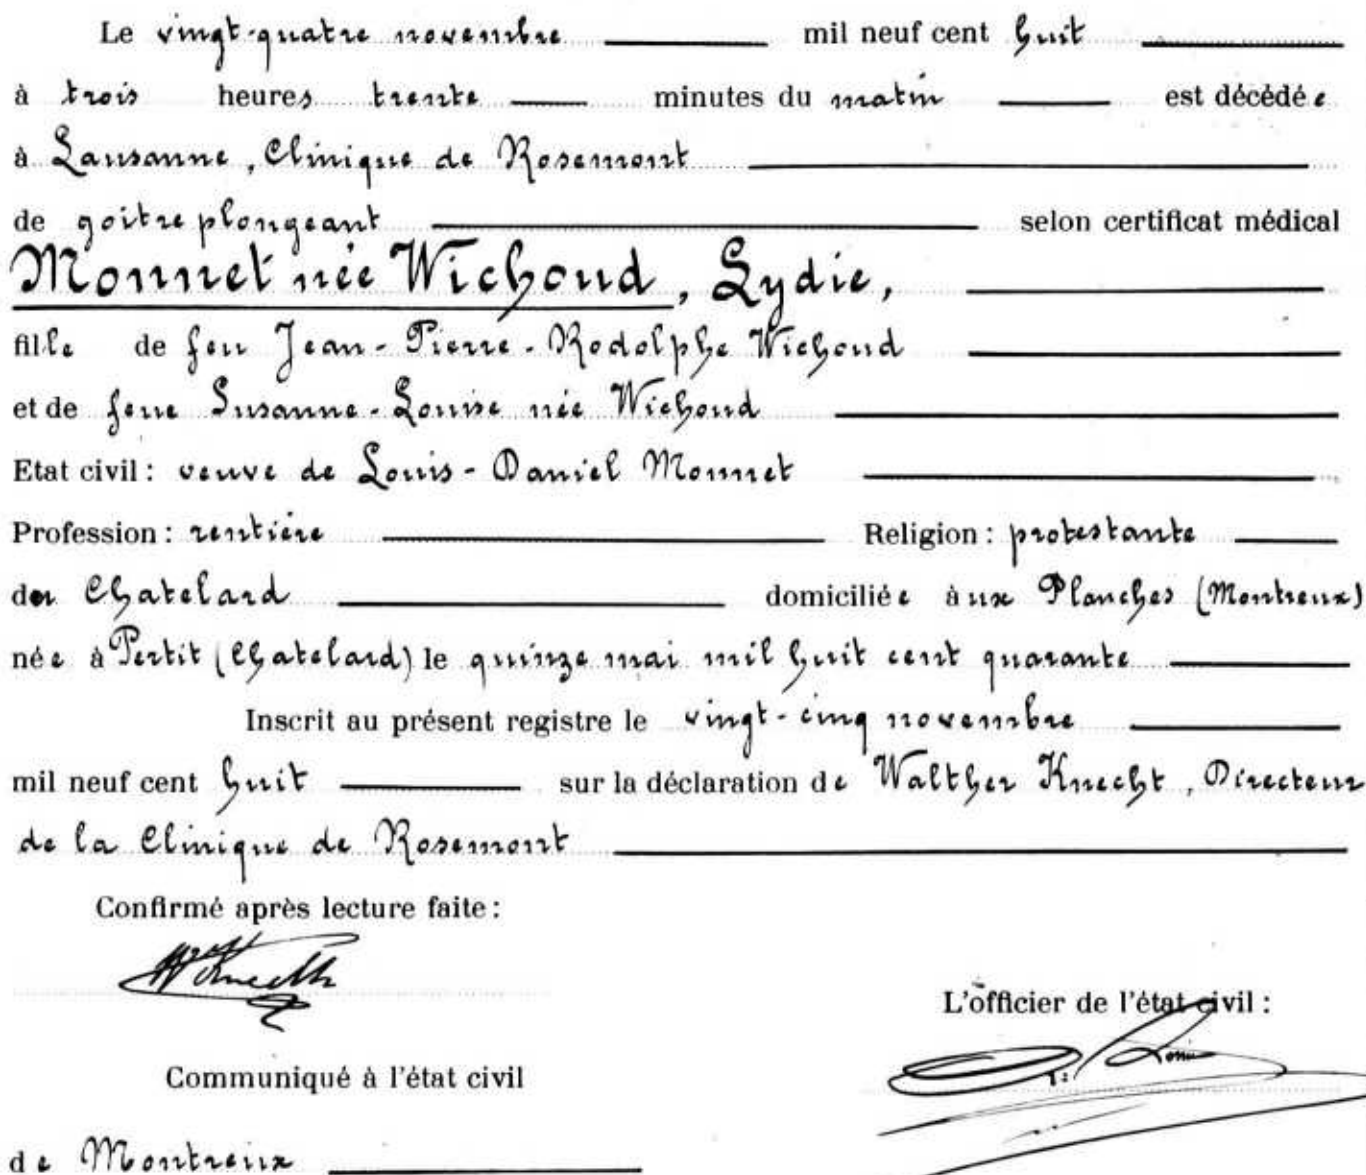 Le vingt-quatre novembre mil neuf cent huit
à trois heures trente minutes du matin est décédée
à Lausanne, Clinique de Rosemont
de goitre plongeant selon certificat médical
Monnet née Wichoud, Lydie,
fille de feu Jean-Pierre-Rodolphe Wichoud
et de feue Susanne-Louise née Wichoud
Etat civil: veuve de Louis-Daniel Monnet
Profession: rentière Religion: protestante
du Chatelard domiciliée aux Planches (Montreux)
née à Pertit (Chatelard) le quinze mai mil huit cent quarante
Inscrit au présent registre le vingt-cinq novembre
mil neuf cent huit sur la déclaration de Walther Knecht, Directeur
de la Clinique de Rosemont
Confirmé après lecture faite:
W Knecht
L'officier de l'état civil:
Communiqué à l'état civil
de Montreux